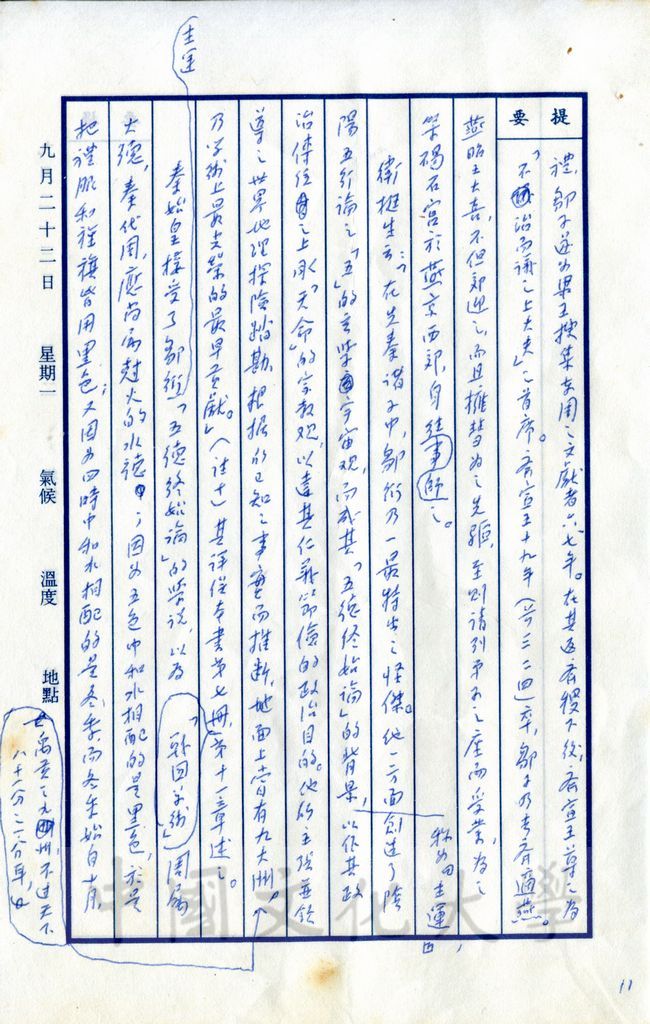 提要
禮，鄒子遂為梁王搜集女用之文獻者六七年。在其返齊稷下後，齊宣王尊之為
「不治而議之上大夫」之首席。齊宣王十九年（前三二四）卒，鄒子乃去齊適燕。
燕昭王大喜，不但郊迎之，而且擁彗為之先驅，至則請列弟子之座而受業，為之
築碣石宮於燕京西郊，身往事師之。
衛挺生云：「在先秦諸子中，鄒衍乃一最特出之怪傑。他一方面創造了陰
陽五行論之「五」的玄學宇宙觀，而成其「五德終始論」的背景，以作其政
稱為主運
治傳位之上承「天命」的宗教觀，以達其仁義節儉的政治目的。他的主張兼領
導之世界地理探險踏勘，根據的已知之事實而推斷，地面上當有九大洲，
乃學術上最光榮的最早貢獻。」（註十）其詳從本書第七冊第十一章述之。
秦始皇接受了鄒衍「五德終始論」的學說，以為
主運
「戰國學術」
周屬
火德，秦代周，應尚屬尅火的水德；因為五色中和水相配的是黑色，於是
把禮服和旌旗皆用黑色；又因為四時中和水相配的是冬季，而冬季始自十月
九月二十二日 星期一 氣候 溫度 地點
禹貢之九州不過天下
八十一分之一分耳，
中國文化大學
11